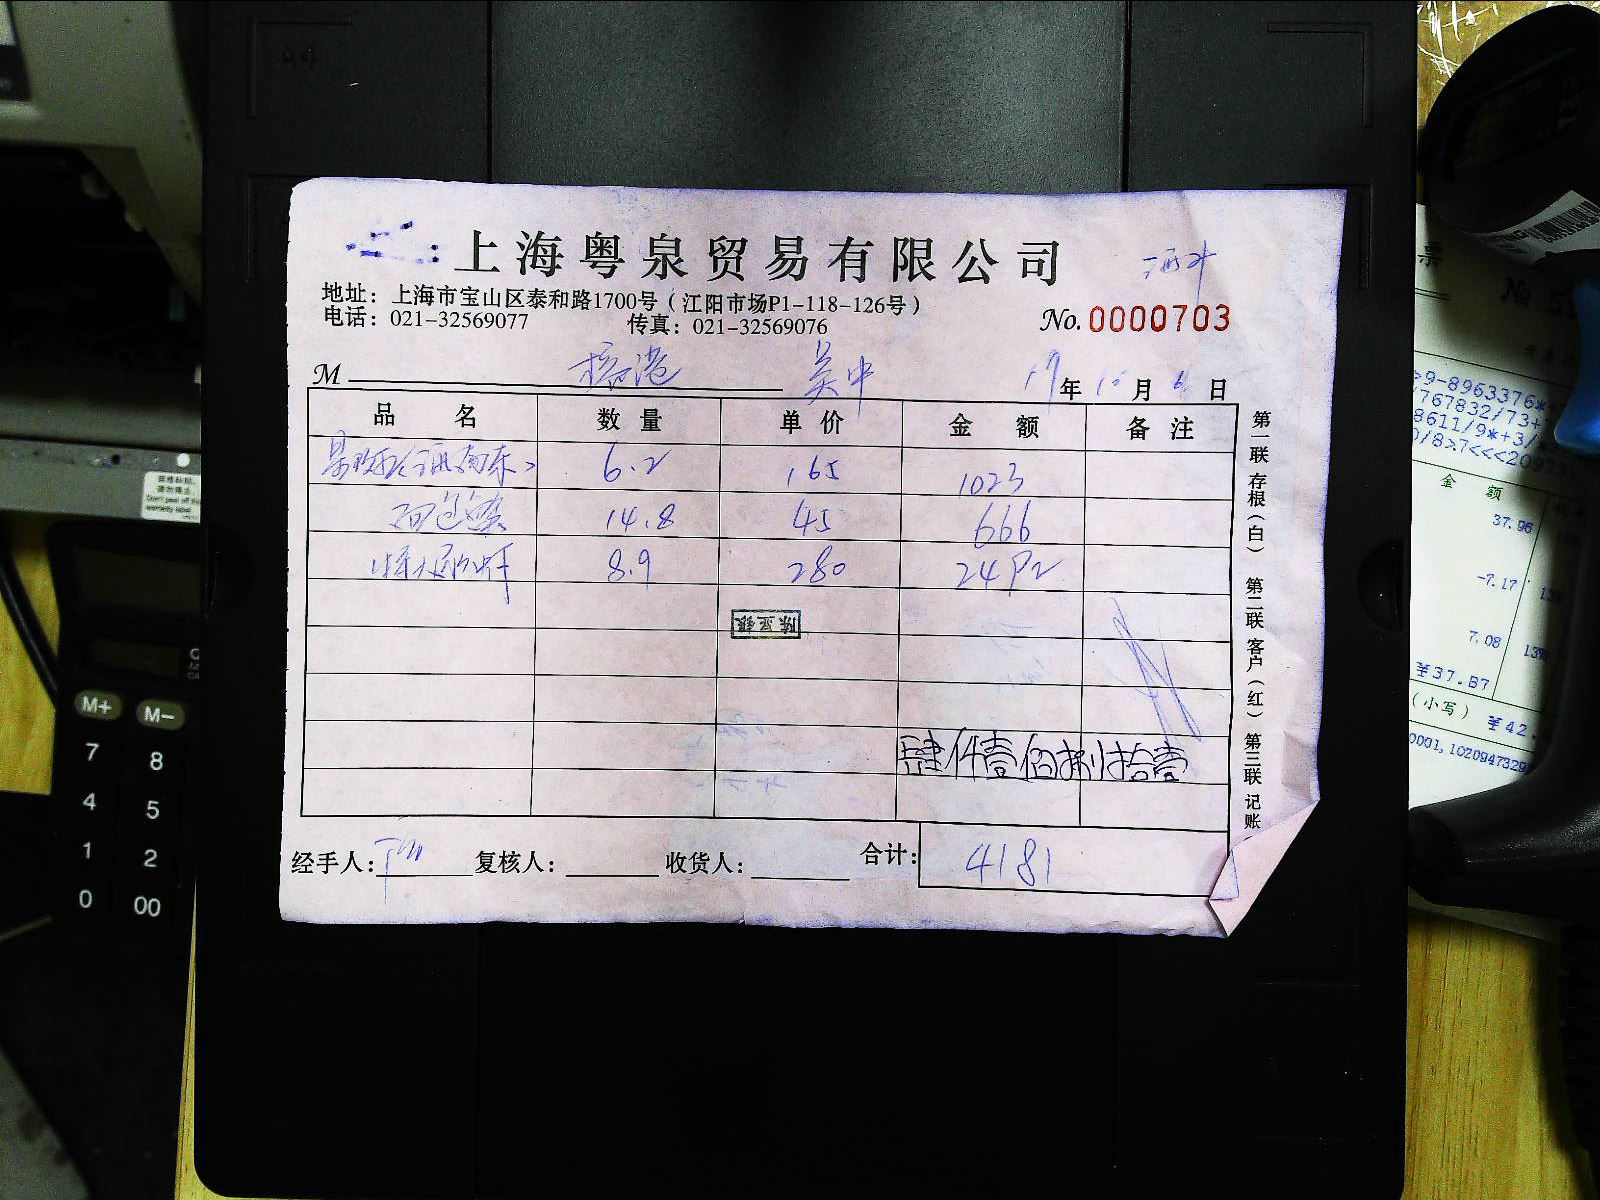 上海粤泉贸易有限公司
地址：上海市宝山区泰和路1700号（江阳市场P1-118-126号）
电话：021-32569077 传真：021-32569076
No.0000703
M 吴中 年 月 6 日
品 名 数 量 单 价 金 额 备 注
6.2 165 1023
14.8 45 666
8.9 280 2492
肆仟壹佰捌拾壹
经手人： 复核人： 收货人： 合计： 4181
第一联 存根（白） 第二联 客户（红） 第三联 记账
A4
M+ M-
7 8
4 5
1 2
0 00
票
№
金 额
37.96
-7.17
7.08
¥37.87
（小写） ¥42.